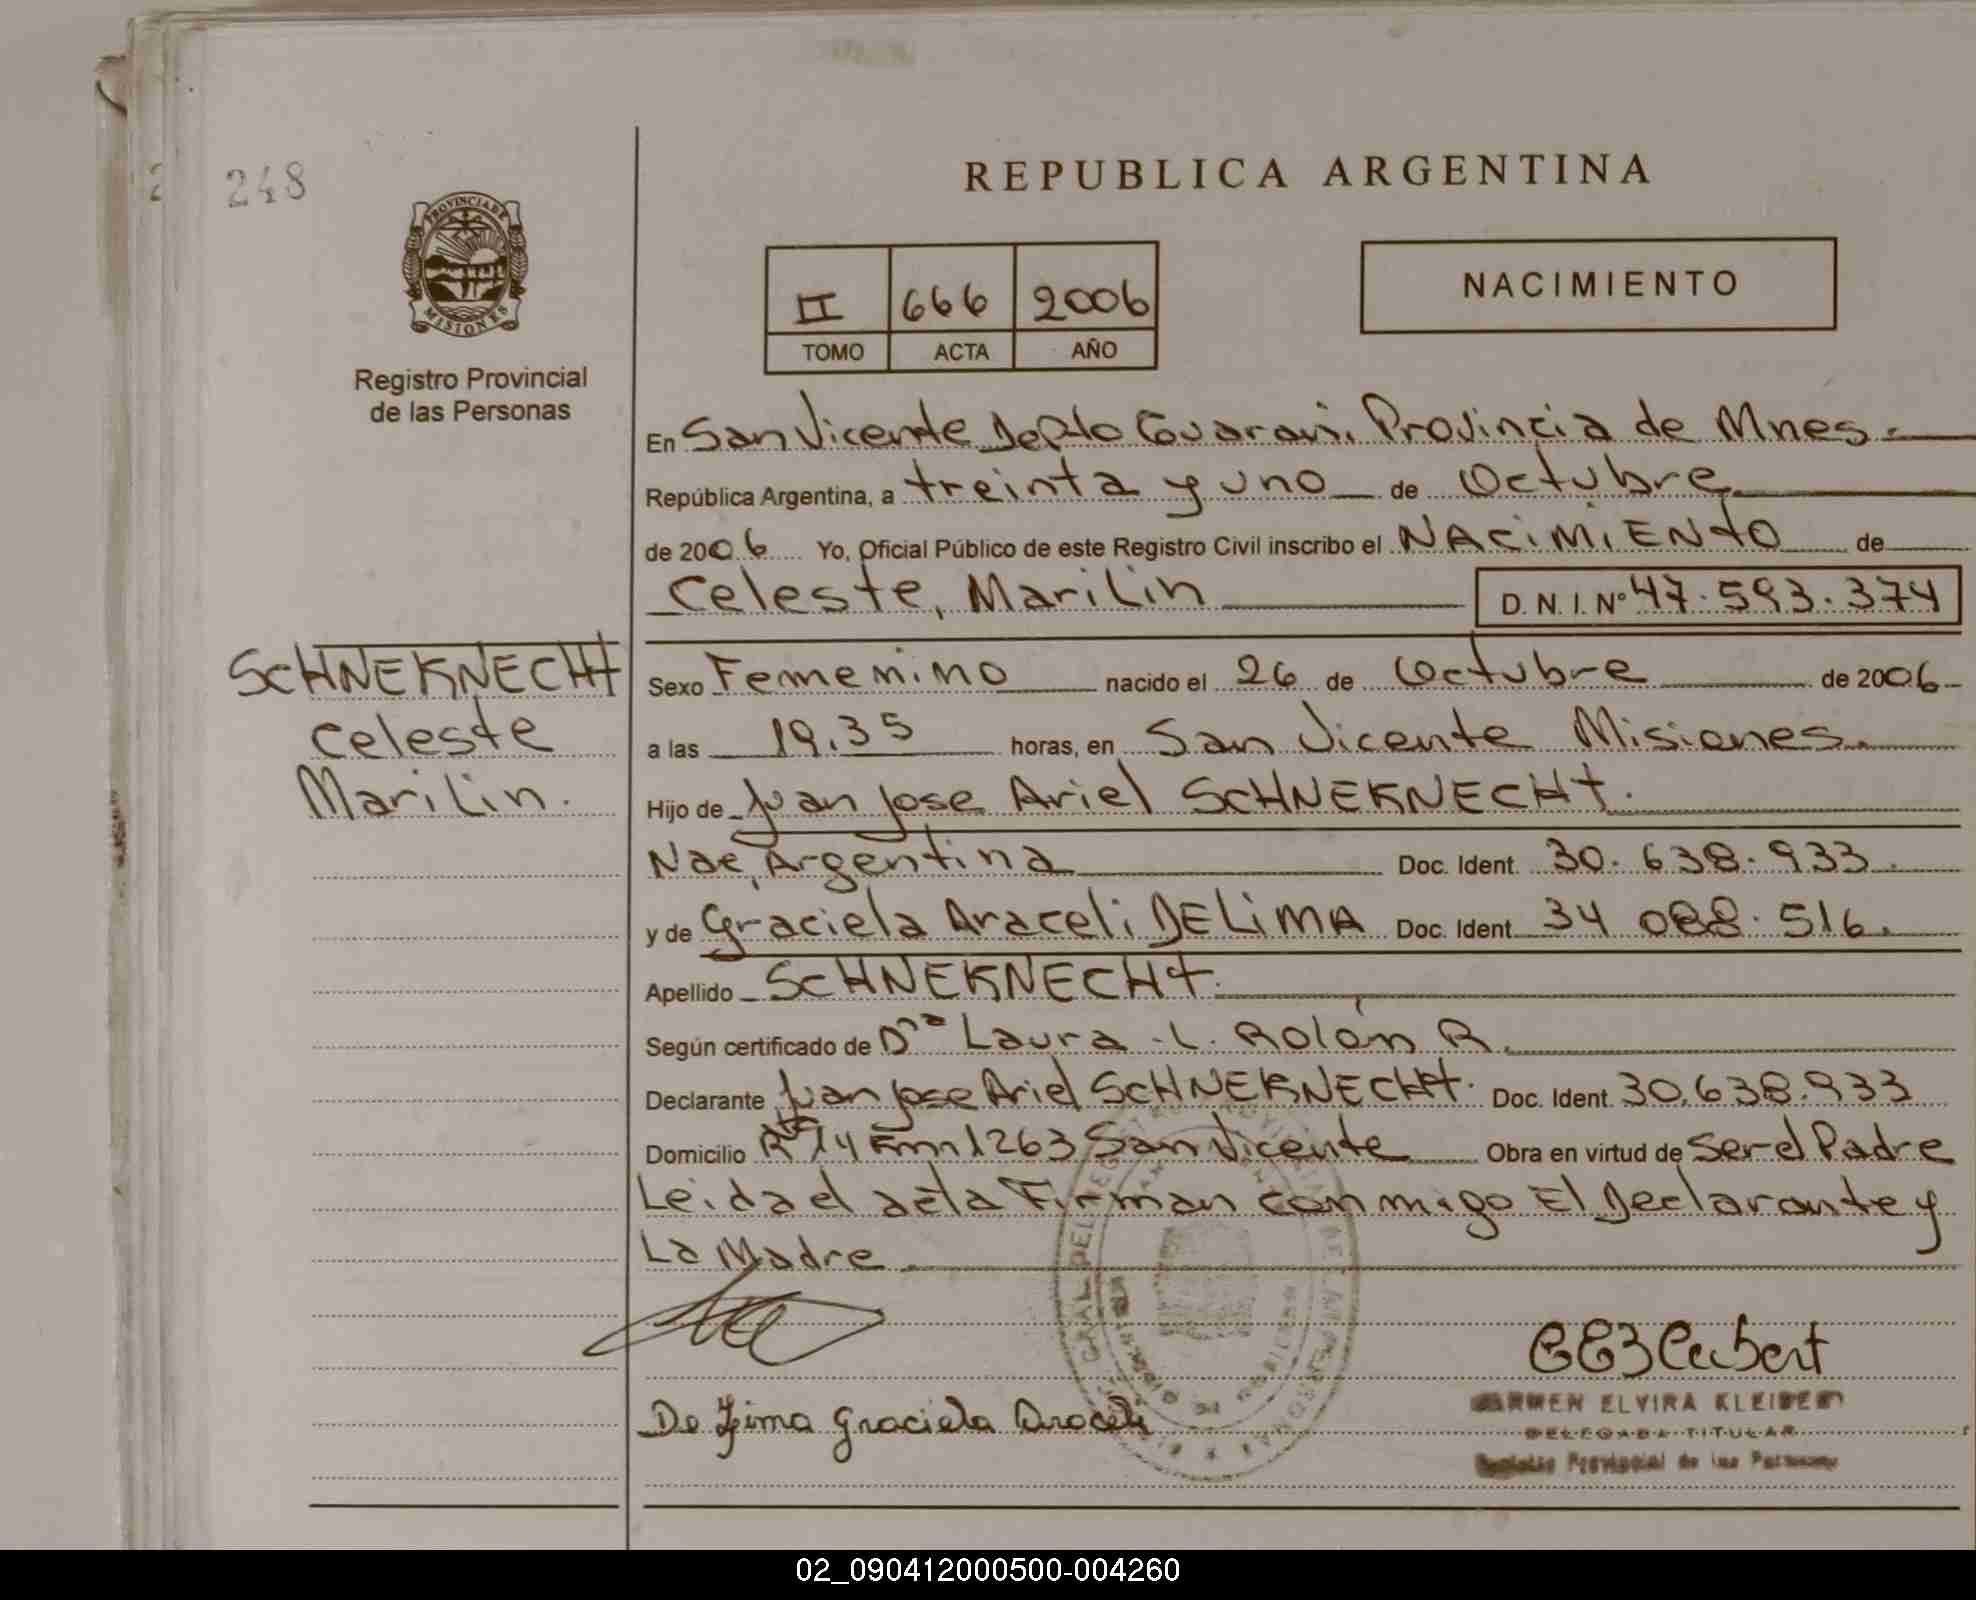 248
PROVINCIA DE
MISIONES
Registro Provincial
de las Personas
REPUBLICA ARGENTINA
II 666 2006
TOMO ACTA AÑO
NACIMIENTO
En San Vicente Depto Guarani. Provincia de Mnes.
República Argentina, a treinta y uno de Octubre
de 2006 Yo, Oficial Público de este Registro Civil inscribo el NACIMIENTO de
Celeste, Marilin D. N. I. Nº 47.593.374
SCHNEKNECHT
Celeste
Marilin.
Sexo Femenino nacido el 26 de Octubre de 2006
a las 19.35 horas, en San Vicente Misiones.
Hijo de Juan Jose Ariel SCHNEKNECHT.
Nac, Argentina Doc. Ident. 30.638.933.
y de Graciela Araceli DE LIMA Doc. Ident. 34 088.516.
Apellido SCHNEKNECHT.
Según certificado de Dra Laura .L. Rolón R.
Declarante Juan Jose Ariel SCHNEKNECHT. Doc. Ident. 30.638.933
Domicilio Rta 14 Km 1263 San Vicente Obra en virtud de Ser el Padre
Leida el acta Firman conmigo El Declarante y
La Madre
De Lima Graciela Araceli
CARMEN ELVIRA
DELEGADA TITULAR
Registro Provincial de las Personas
02_090412000500-004260